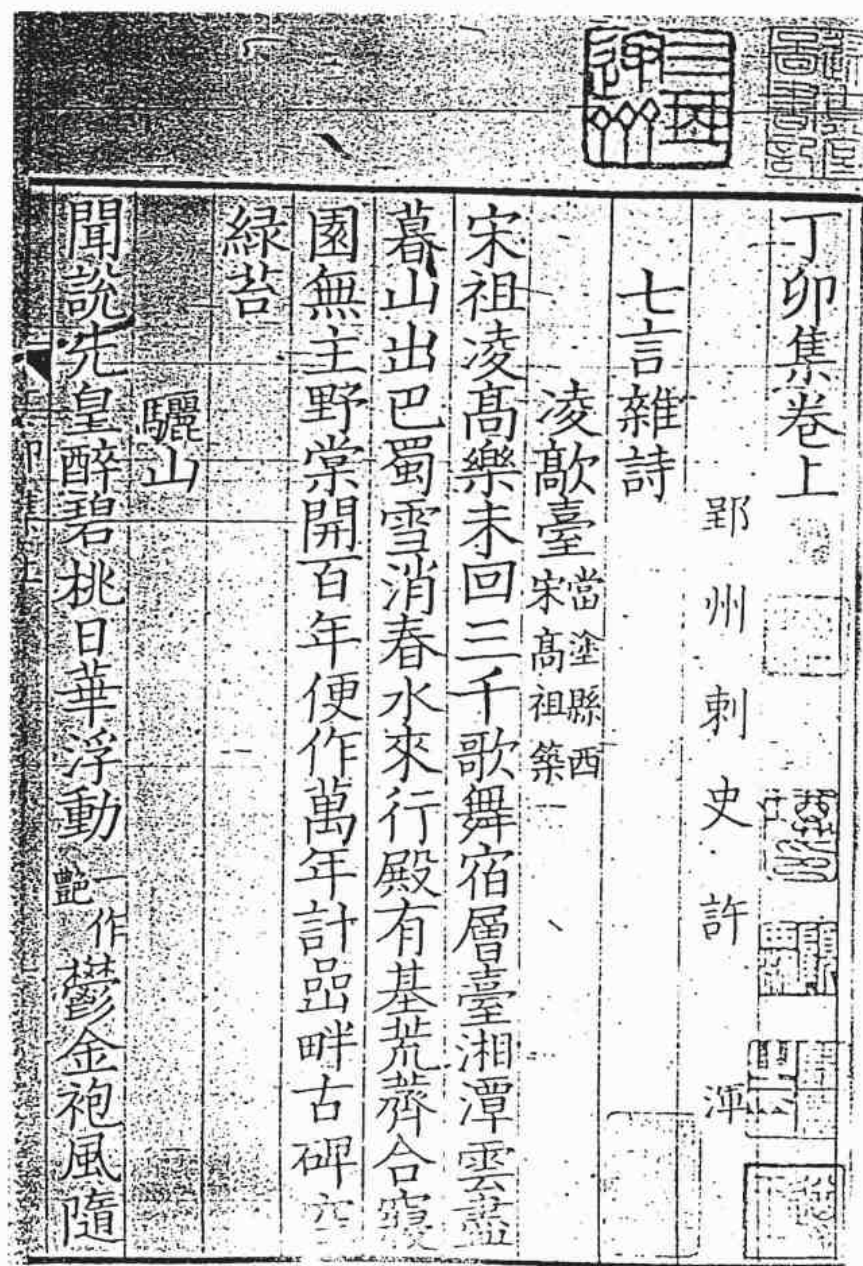 丁卯集卷上
郢州刺史許渾
七言雜詩
凌歊臺當塗縣西宋髙祖築
宋祖凌髙樂未回三千歌舞宿層臺湘潭雲盡
暮山出巴蜀雪消春水來行殿有基荒薺合寢
園無主野棠開百年便作萬年計嵒畔古碑空
緑苔
驪山
聞說先皇醉碧桃日華浮動一作艷鬱金袍風隨